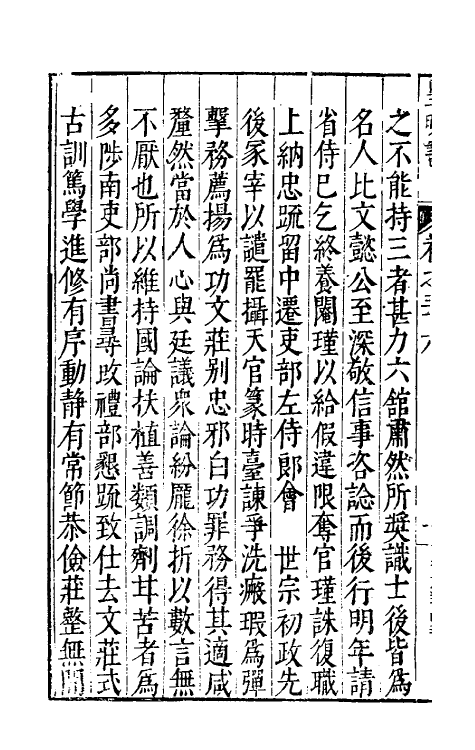 之不能持三者甚力六舘肅然所奬識士後皆爲
名人比文懿公至深敬信事咨諗而後行明年請
省侍巳乞終養閹瑾以給假違限奪官瑾誅復職
上納忠䟽留中遷吏部左侍郎會　世宗初政先
後冢宰以譴罷攝天官篆時臺諫爭洗瘢瑕爲彈
擊務薦揚爲功文莊别忠邪白功罪務得其適咸
釐然當於人心與廷議衆論紛厖徐折以數言無
不厭也所以維持國論扶植善類調劑甘苦者爲
多陟南吏部尚書尋改禮部懇䟽致仕去文莊式
古訓篤學進修有序動靜有常節恭儉莊整無間